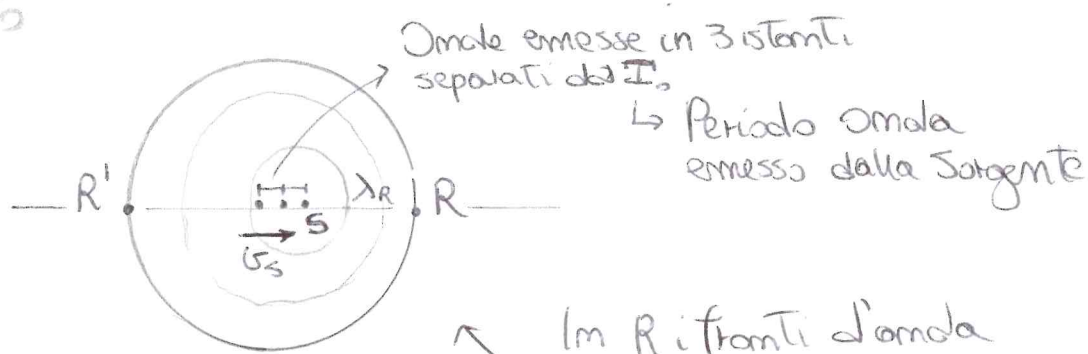 Onde emesse in 3 istanti
separati da T₀
↳ Periodo onda
emesso dalla Sorgente
R' λR R
S
vs
In R i fronti d'onda